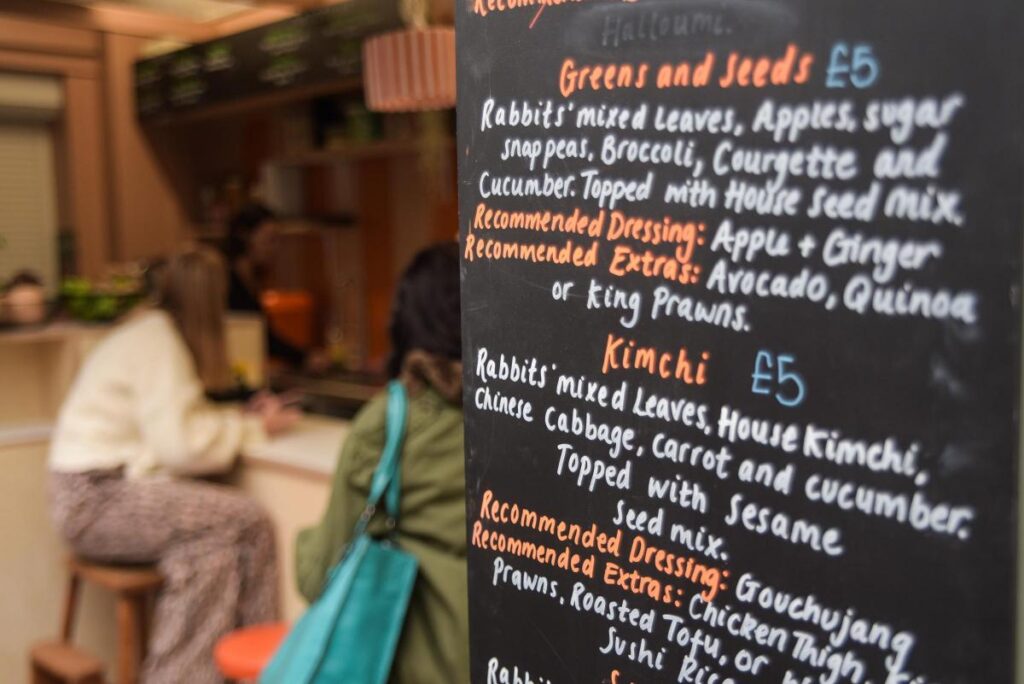 Halloumi.
Greens and Seeds £5
Rabbits' mixed Leaves, Apples, sugar
snap peas, Broccoli, Courgette and
Cucumber. Topped with House seed mix.
Recommended Dressing: Apple + Ginger
Recommended Extras: Avocado, Quinoa
or King Prawns.
Kimchi £5
Rabbits' mixed Leaves, House Kimchi,
Chinese Cabbage, carrot and cucumber.
Topped with Sesame
Seed mix.
Recommended Dressing: Gouchujang
Recommended Extras: Chicken Thigh,
Prawns, Roasted Tofu, or
Sushi
Rabbits'